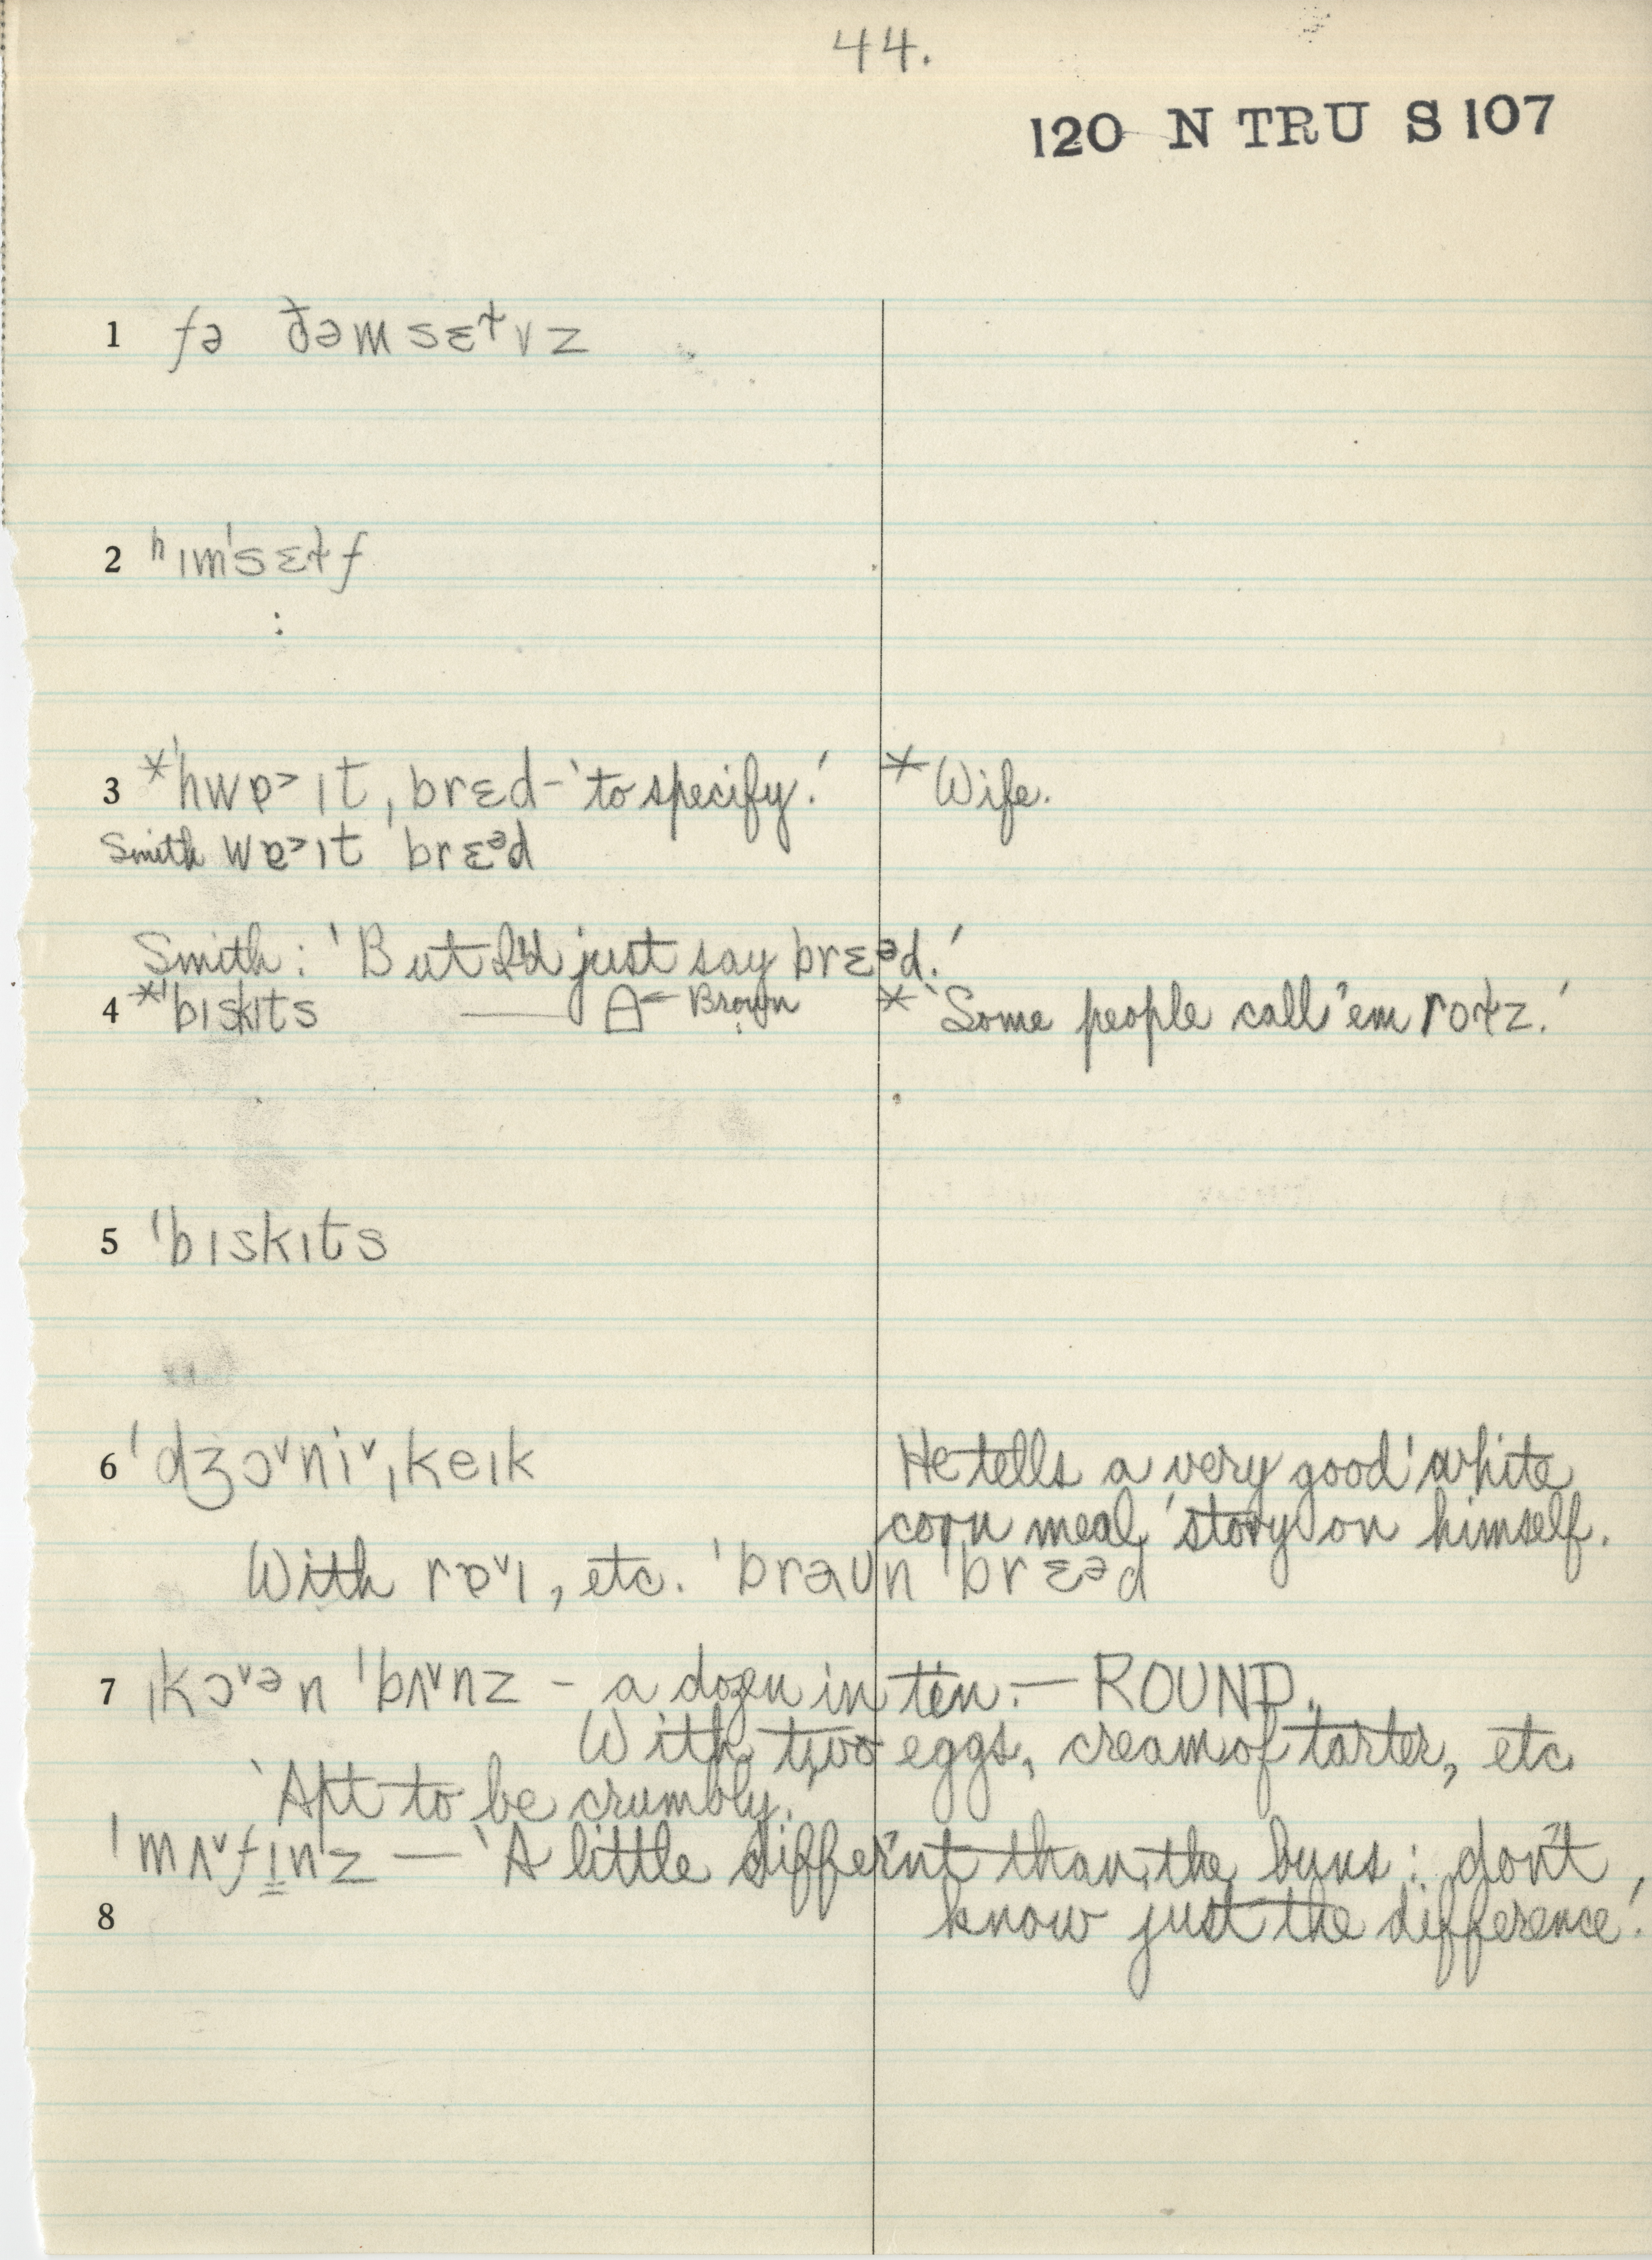 44.
120 N TRU S 107
1 fə ðəmsɛɫvz
2 ʰɪm'sɛɫf
3 *'hwɐ˃ɪt ˌbrɛd - 'to specify.' * Wife.
Smith wɐ˃ɪt brɛᵊd
Smith: 'But I'd just say brɛᵊd.'
4 *'bɪskɪts — Brown * 'Some people call 'em roɫz.'
5 'bɪskɪts
6 'dʒɔ˅ni˅ˌkeɪk He tells a very good 'white
corn meal' story on himself.
With rɐ˅ɪ, etc. 'braʊn 'brɛᵊd
7 ˌkɔ˅ən 'bʌ˅nz - a dozen in tin. — ROUND.
With two eggs, cream of tarter, etc.
'Apt to be crumbly.'
'mʌ˅fɪnz — 'A little differ'nt than the buns: don't
8 know just the difference.'